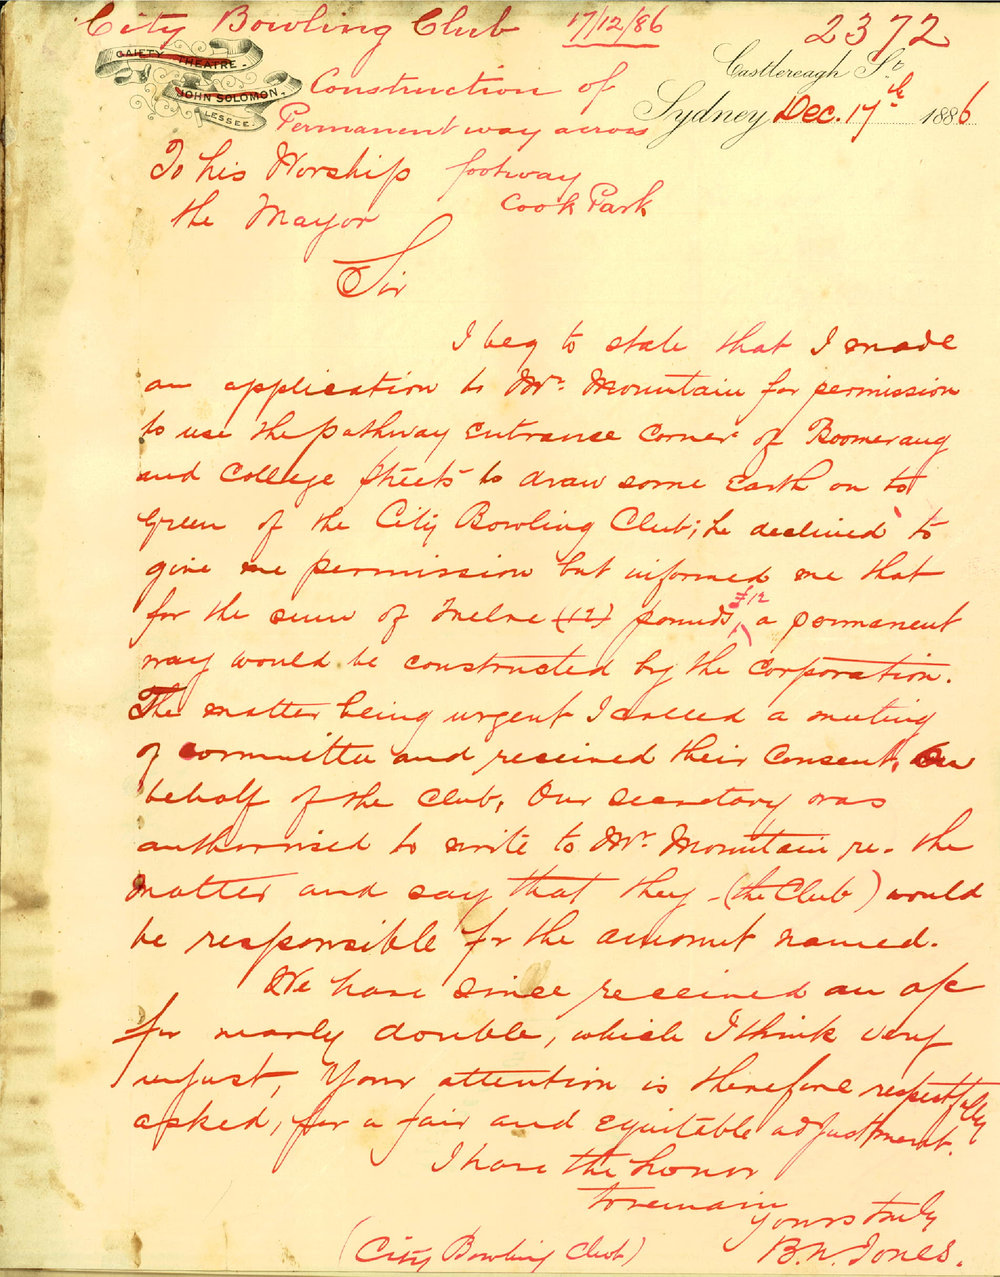 City Bowling Club 17/12/86 2372
GAIETY THEATRE.
JOHN SOLOMON.
LESSEE.
Castlereagh St.
Construction of
Sydney Dec. 17th 1886
Permanent way across
footway
Cook Park
To his Worship
the Mayor
Sir
I beg to state that I made
an application to Mr. Mountain for permission
to use the pathway entrance corner of Boomerang
and College Streets to draw some Earth on to
Green of the City Bowling Club; he declined to
give me permission but informed me that
for the sum of Twelve (12) pounds, £12 a permanent
way would be constructed by the Corporation.
The matter being urgent I called a meeting
of committee and received their consent, on
behalf of the Club, Our secretary was
authorised to write to Mr. Mountain re. the
matter and say that they - (the Club) would
be responsible for the amount named.
We have since received an a/c
for nearly double, which I think very
unjust, Your attention is therefore respectfully
asked, for a fair and equitable adjustment.
I have the honor
to remain
Yours truly
(City Bowling Club) B.N. Jones.